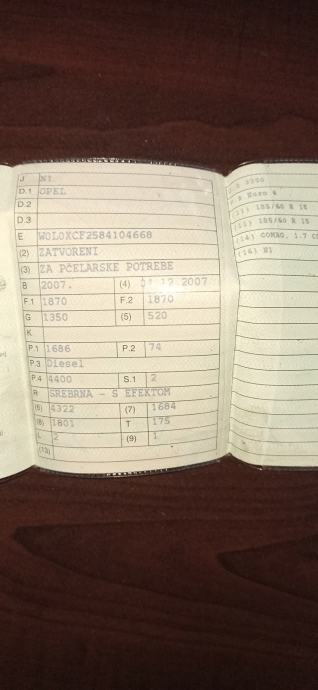 J N1
D.1 OPEL
D.2
D.3
E W0L0XCF2584104668
(2) ZATVORENI
(3) ZA PČELARSKE POTREBE
B 2007. (4) .12.2007
F.1 1870 F.2 1870
G 1350 (5) 520
K
P.1 1686 P.2 74
P.3 Diesel
P.4 4400 S.1 2
R SREBRNA - S EFEKTOM
(6) 4322 (7) 1684
(8) 1801 T 175
L 2 (9) 1
(13)
Euro 4
185/60 R 15
185/60 R 15
(14) COMBO, 1.7
(16) N1